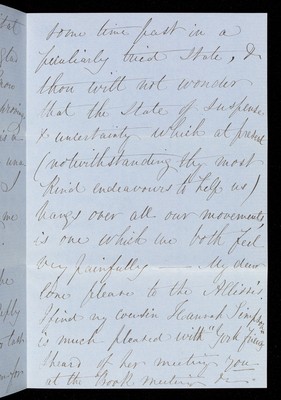 some time past in a
peculiarly tried State, &
thou wilt not wonder
that the State of suspense
& uncertainty which at present
(notwithstanding thy most
kind endeavours to help us)
hangs over all our movements,
is one which we both feel
very painfully — My dear
love please to the
find my cousin Hannah
is much pleased with "York
heard of her meeting you
at the Book meeting &c —